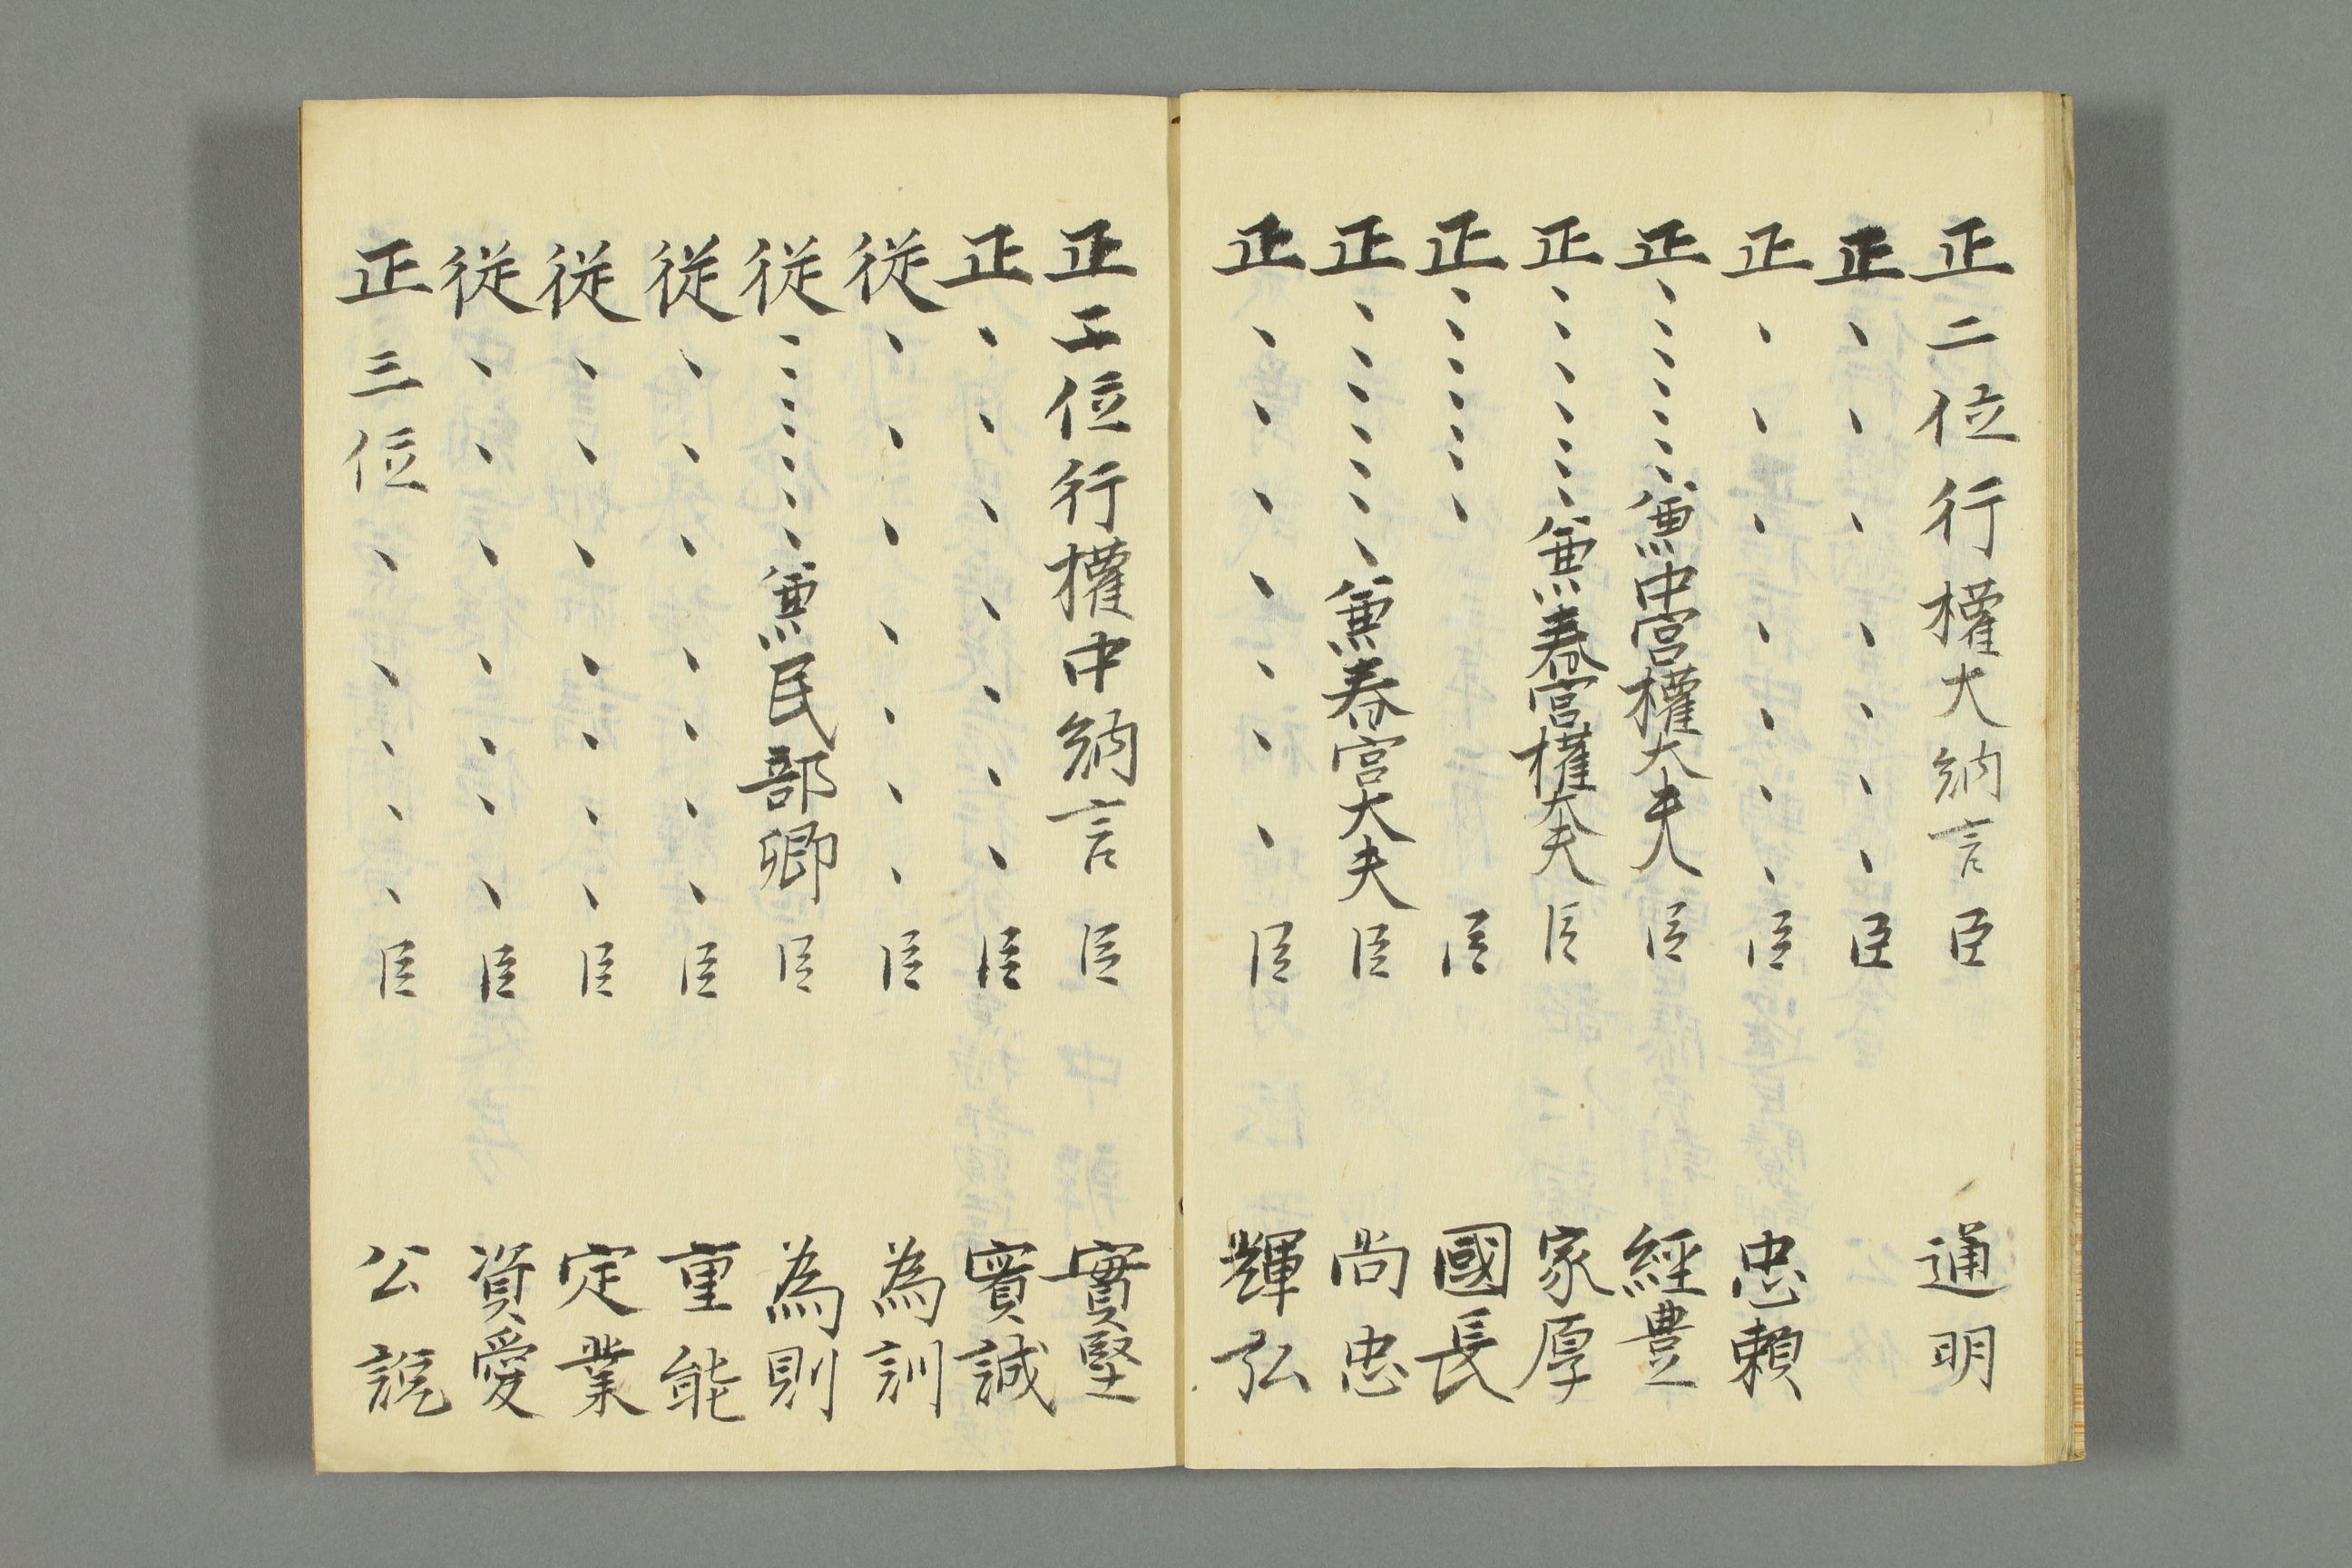 正二位行權大納言臣 通明
正、、、、、、、臣
正、、、、、、、臣 忠頼
正、、、、、、、兼中宮權大夫臣 經豊
正、、、、、、、兼春宮權大夫臣 家厚
正、、、、、、、臣 國長
正、、、、、、、兼春宮大夫臣 尚忠
正、、、、、、、臣 輝弘
正二位行權中納言臣 實堅
正、、、、、、、臣 實誠
従、、、、、、、臣 為訓
従、、、、、、、兼民部卿臣 為則
従、、、、、、、臣 重能
従、、、、、、、臣 定業
従、、、、、、、臣 資愛
正三位、、、、、臣 公説